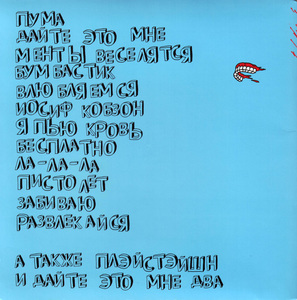 ПУМА
ДАЙТЕ ЭТО МНЕ
МЕНТЫ ВЕСЕЛЯТСЯ
БУМБАСТИК
ВЛЮБЛЯЕМСЯ
ИОСИФ КОБЗОН
Я ПЬЮ КРОВЬ
БЕСПЛАТНО
ЛА-ЛА-ЛА
ПИСТОЛЕТ
ЗАБИВАЮ
РАЗВЛЕКАЙСЯ
А ТАКЖЕ ПЛЭЙСТЭЙШН
И ДАЙТЕ ЭТО МНЕ ДВА